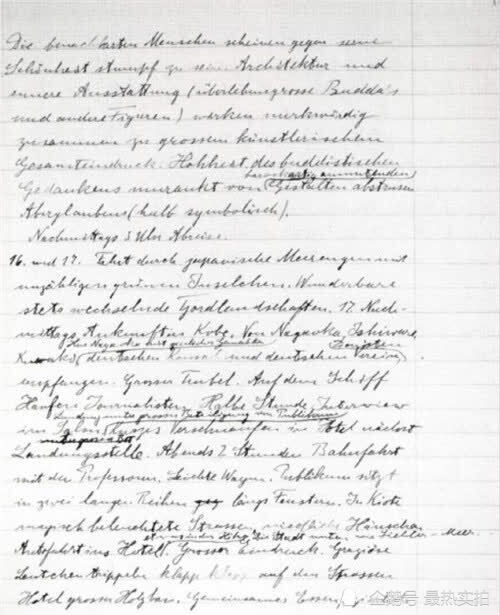 Die benachbarten Menschen scheinen gegen seine
Schönheit stumpf zu sein. Architektur und
innere Ausstattung (überlebensgrosse Budda's
und andere Figuren) wirken merkwürdig
zusammen zu grossem künstlerischen
Gesamteindruck. Hohheit des buddistischen
barock anmutenden
Gedankens umrankt von Gestalten abstrusen
Aberglaubens (halb symbolisch).
Nachmittags 3 Uhr Abreise.
16. und 17. Fahrt durch japanische Meerengen mit
unzähligen grünen Inselchen. Wunderbare
stets wechselnde Fjordlandschaften. 17. Nach-
mittags Ankunft in Kobe. Von Nagaoka, Ishiware
Kuwaki (deutschen Konsul und deutschen Verein)
empfangen. Grosser Trubel. Auf dem Schiff
Haufen Journalisten. Halbe Stunde Interview
im Salon. Kurzes Verschnaufen in Hotel nächst
Landungsstelle. Abends 2 Stunden Bahnfahrt
mit den Professoren. Leichte Wagen. Publikum sitzt
in zwei langen Reihen längs Fenstern. In Kioto
magisch beleuchtete Strassen, niedliche Häuschen
Autofahrt ins Hotel. Stadt unten wie Lichter-Meer.
Grosser Eindruck. Graziöse
Leutchen trippeln klapp klapp auf den Strassen
Hotel grosser Holzbau. Gemeinsames Essen,
企鹅号 @最热实拍